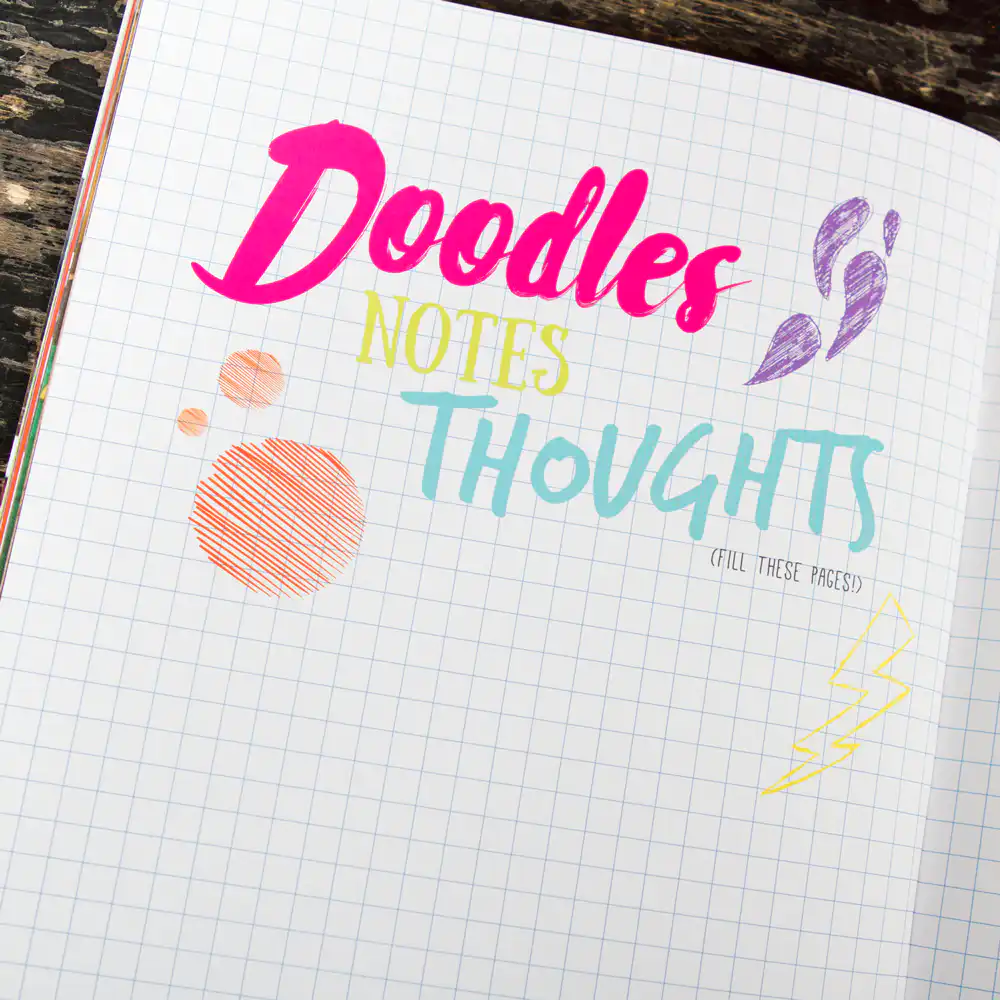 Doodles
NOTES
THOUGHTS
(FILL THESE PAGES!)